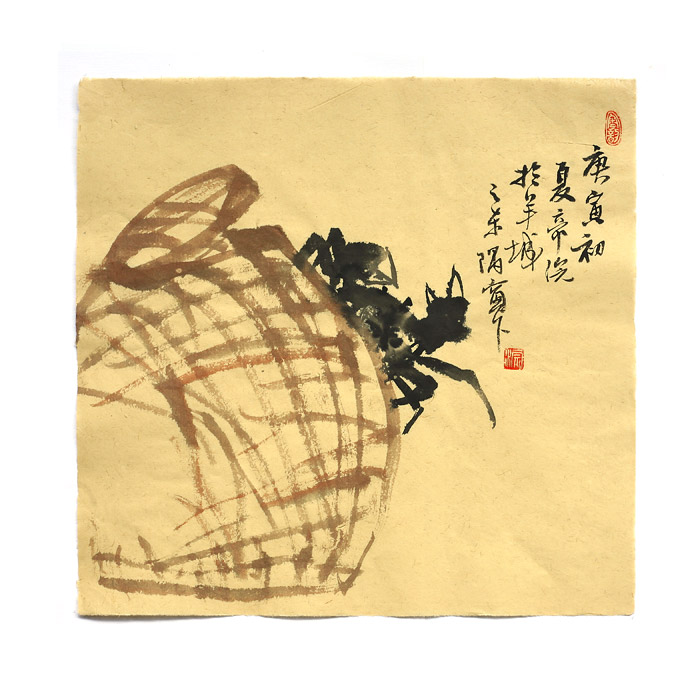 庚寅初
夏帝浣
於羊城
之东隅窗下